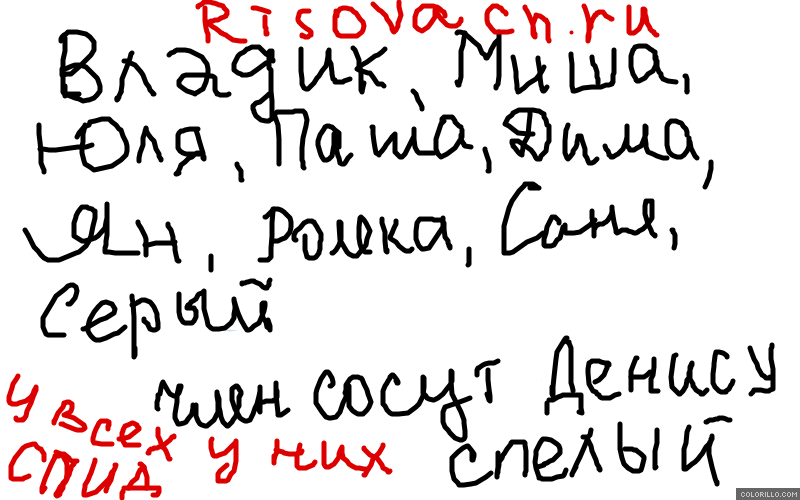 Risovach.ru
Владик, Миша,
Юля, Паша, Дима,
Ян, Ромка, Саня,
Серый
член сосут Денису
спелый
у всех у них
СПИД
COLORILLO.COM